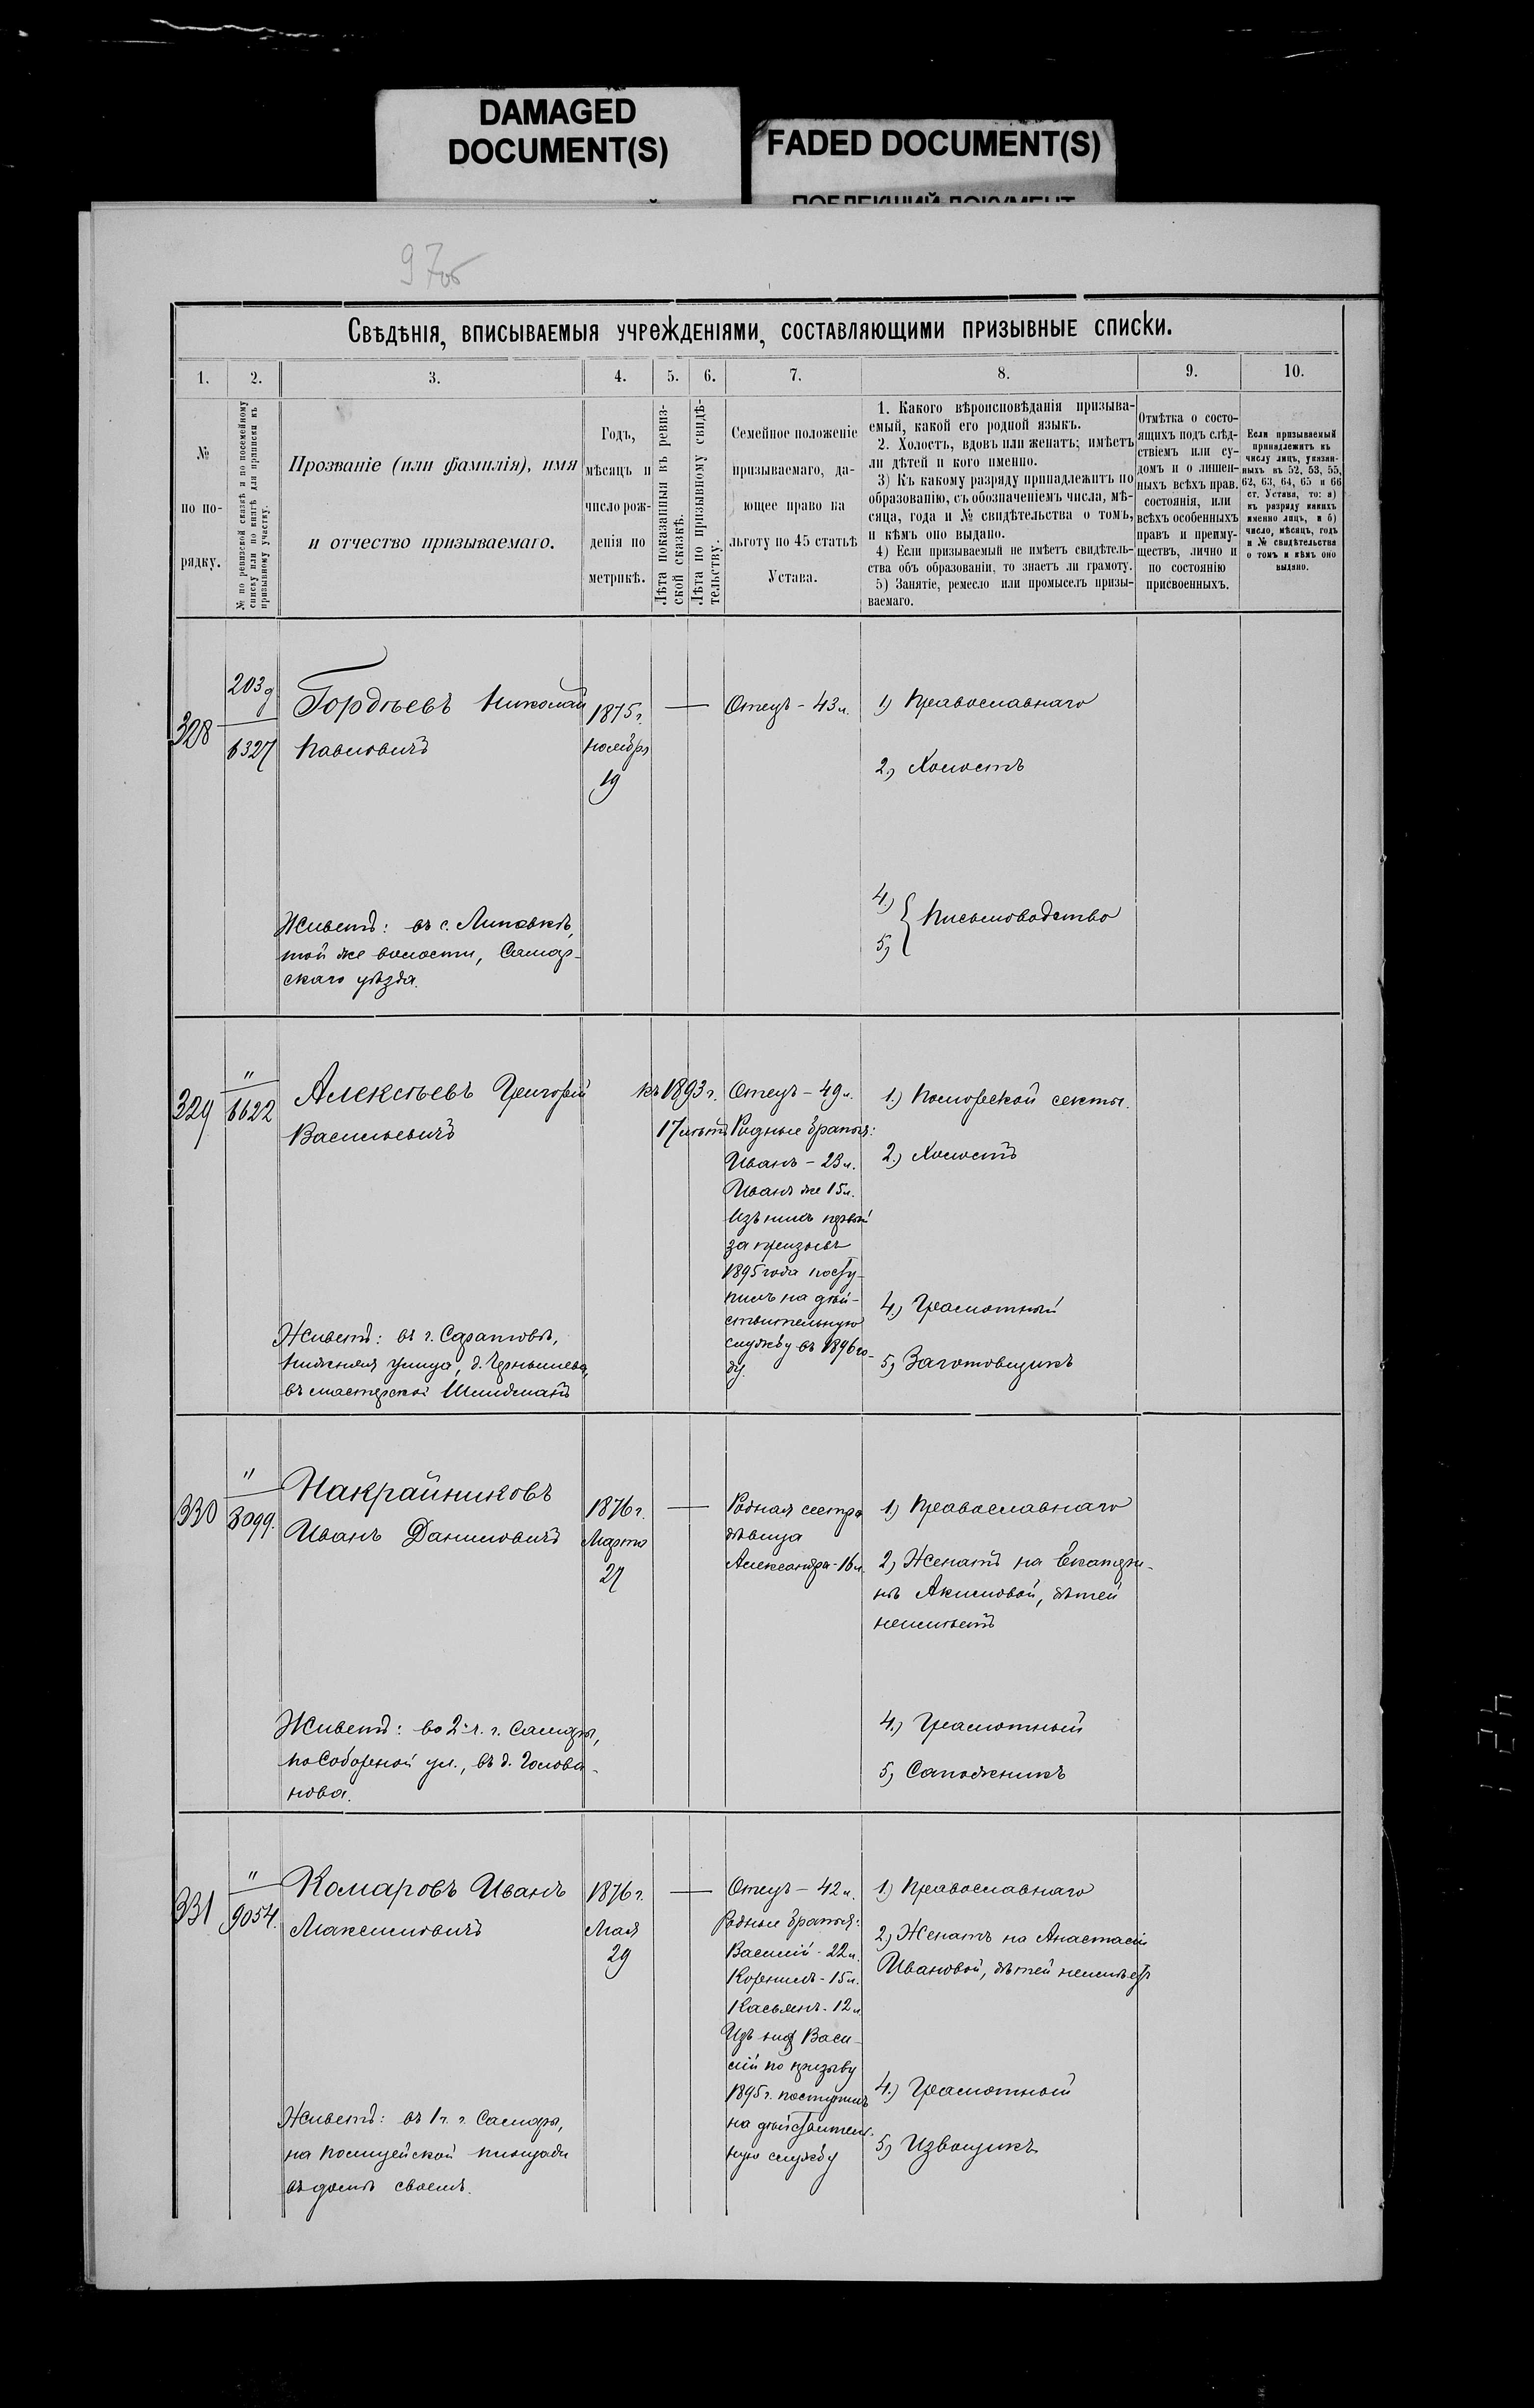 DAMAGED
DOCUMENT(S)
FADED DOCUMENT(S)
ПОБЛЕКШИЙ ДОКУМЕНТ
97об
Свѣдѣнія, вписываемыя учрежденіями, составляющими призывные списки.
1. 2. 3. 4. 5. 6. 7. 8. 9. 10.
№
по по-
рядку.
№ по ревизской сказкѣ и по посемейному
списку или по книгѣ для приписки къ
призывному участку.
Прозваніе (или фамилія), имя
и отчество призываемаго.
Годъ,
мѣсяцъ и
число рож-
денія по
метрикѣ.
Лѣта показанныя въ ревиз-
ской сказкѣ.
Лѣта по призывному свидѣ-
тельству.
Семейное положеніе
призываемаго, да-
ющее право на
льготу по 45 статьѣ
Устава.
1. Какого вѣроисповѣданія призыва-
емый, какой его родной языкъ.
2. Холостъ, вдовъ или женатъ; имѣетъ
ли дѣтей и кого именно.
3) Къ какому разряду принадлежитъ по
образованію, съ обозначеніемъ числа, мѣ-
сяца, года и № свидѣтельства о томъ,
и кѣмъ оно выдано.
4) Если призываемый не имѣетъ свидѣтель-
ства объ образованіи, то знаетъ ли грамоту.
5) Занятіе, ремесло или промыселъ призы-
ваемаго.
Отмѣтка о состо-
ящихъ подъ слѣд-
ствіемъ или су-
домъ и о лишен-
ныхъ всѣхъ прав.
состоянія, или
всѣхъ особенныхъ
правъ и преиму-
ществъ, лично и
по состоянію
присвоенныхъ.
Если призываемый
принадлежитъ къ
числу лицъ, указан-
ныхъ въ 52, 53, 55,
62, 63, 64, 65 и 66
ст. Устава, то: а)
къ разряду какихъ
именно лицъ, и б)
число, мѣсяцъ, годъ
и № свидѣтельства
о томъ и кѣмъ оно
выдано.
328
203д
6327
Гордѣевъ Николай
Павловичъ
Живетъ: въ с. Липовкѣ,
той же волости, Самар-
скаго уѣзда.
1875 г.
ноября
19
—
Отецъ - 43 л.
1) Православнаго
2) Холостъ
4)
5)
Письмоводство
329
"
6622
Алексѣевъ Григорій
Васильевичъ
Живетъ: въ г. Саратовѣ,
Нижняя улица, д. Чернышева,
въ мастерской Шмидманъ
къ 1893 г.
17 лѣтъ
Отецъ - 49 л.
Родные братья:
Иванъ - 23 л.
Иванъ же 15 л.
Изъ нихъ первый
за призывъ
1895 года посту-
пилъ на дѣй-
ствительную
службу въ 1896 го-
ду.
1.) Поморской секты.
2.) Холостъ
4.) Грамотный
5) Заготовщикъ
330
"
8099.
Накрайниковъ
Иванъ Даниловичъ
Живетъ: во 2 ч. г. Самары,
по Соборной ул., въ д. Голова-
нова.
1876 г.
Марта
27
—
Родная сестра
дѣвица
Александра - 16 л.
1) Православнаго
2) Женатъ на Екатери-
нѣ Акимовой, дѣтей
неимѣетъ
4.) Грамотный
5) Сапожникъ
331
"
9054.
Комаровъ Иванъ
Максимовичъ
Живетъ: въ 1 ч. г. Самары,
на Полицейской площади
въ домѣ своемъ.
1876 г.
Мая
29
—
Отецъ - 42 л.
Родные братья:
Василій - 22 л.
Корнилъ - 15 л.
Касьянъ - 12 л
Изъ нихъ Васи-
лій по призыву
1895 г. поступилъ
на дѣйствитель.
ную службу
1) Православнаго
2) Женатъ на Анастасіи
Ивановой, дѣтей неимѣетъ
4.) Грамотный
5) Извощикъ
421